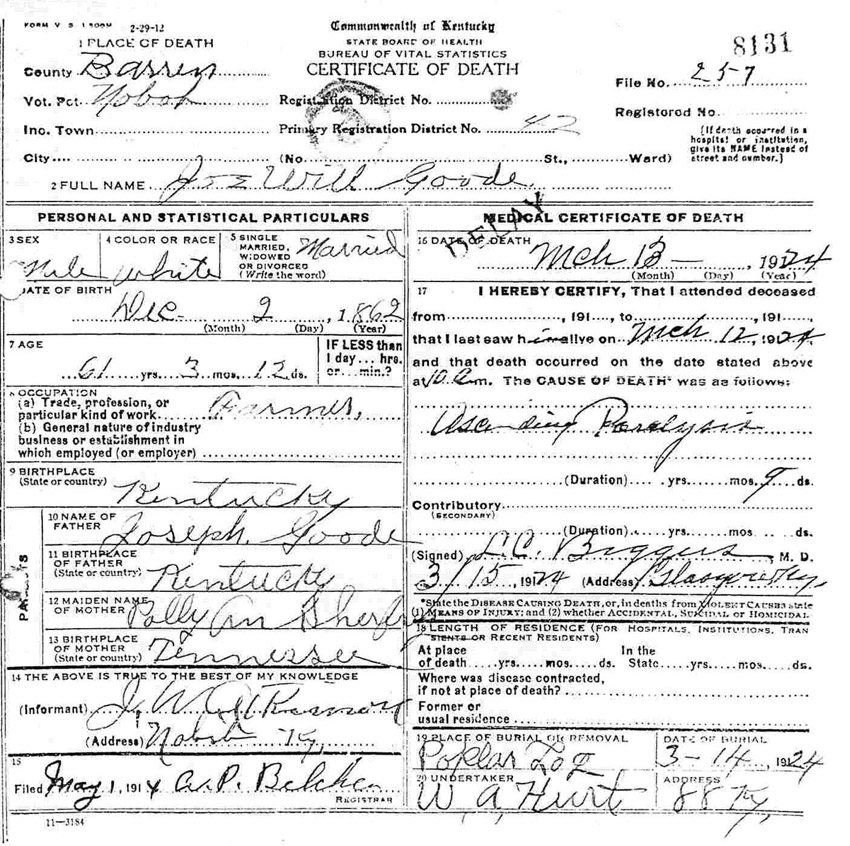 FORM V S 1 2-29-12
Commonwealth of Kentucky
STATE BOARD OF HEALTH
BUREAU OF VITAL STATISTICS
CERTIFICATE OF DEATH
8131
1 PLACE OF DEATH
County Barren
Vot. Pct. Nobob
Inc. Town
City
Registration District No.
Primary Registration District No. 42
(No. St., Ward)
File No. 257
Registered No.
[If death occurred in a
hospital or institution,
give its NAME instead of
street and number.]
2 FULL NAME Joe Will Goode
DELAY
PERSONAL AND STATISTICAL PARTICULARS
3 SEX Male
4 COLOR OR RACE White
5 SINGLE
MARRIED,
WIDOWED
OR DIVORCED
(Write the word) Married
DATE OF BIRTH
Dec 2, 1862
(Month) (Day) (Year)
7 AGE
61 yrs. 3 mos. 12 ds.
IF LESS than
1 day... hrs.
or... min.?
OCCUPATION
(a) Trade, profession, or
particular kind of work Farmer,
(b) General nature of industry
business or establishment in
which employed (or employer)
9 BIRTHPLACE
(State or country) Kentucky
PARENTS
10 NAME OF
FATHER Joseph Goode
11 BIRTHPLACE
OF FATHER
(State or country) Kentucky
12 MAIDEN NAME
OF MOTHER Polly An
13 BIRTHPLACE
OF MOTHER
(State or country) Tennessee
14 THE ABOVE IS TRUE TO THE BEST OF MY KNOWLEDGE
(Informant) J. W.
(Address) Nobob Ky,
15
Filed May 1, 1914 A. P. Belcher
REGISTRAR
11-3184
MEDICAL CERTIFICATE OF DEATH
16 DATE OF DEATH
Mch 13 -, 1924
(Month) (Day) (Year)
17 I HEREBY CERTIFY, That I attended deceased
from , 191 , to , 191 ,
that I last saw him alive on Mch 12, 1924
and that death occurred on the date stated above
at 10. a.m. The CAUSE OF DEATH* was as follows:
Ascending Paralysis
(Duration) yrs. mos. 9 ds.
Contributory
(SECONDARY)
(Duration) yrs. mos. ds.
(Signed) L. C. Biggers, M. D.
3/15, 1924 (Address) Glasgow Ky
*State the DISEASE CAUSING DEATH, or, in deaths from VIOLENT CAUSES state
(1) MEANS OF INJURY: and (2) whether ACCIDENTAL, SUICIDAL OR HOMICIDAL
18 LENGTH OF RESIDENCE (FOR HOSPITALS, INSTITUTIONS, TRAN
SIENTS OR RECENT RESIDENTS)
At place
of death yrs. mos. ds.
In the
State yrs. mos. ds.
Where was disease contracted,
if not at place of death?
Former or
usual residence
19 PLACE OF BURIAL OR REMOVAL
Poplar Log
DATE OF BURIAL
3-14, 1924
20 UNDERTAKER
W. A. Hurt
ADDRESS
88 Ky,